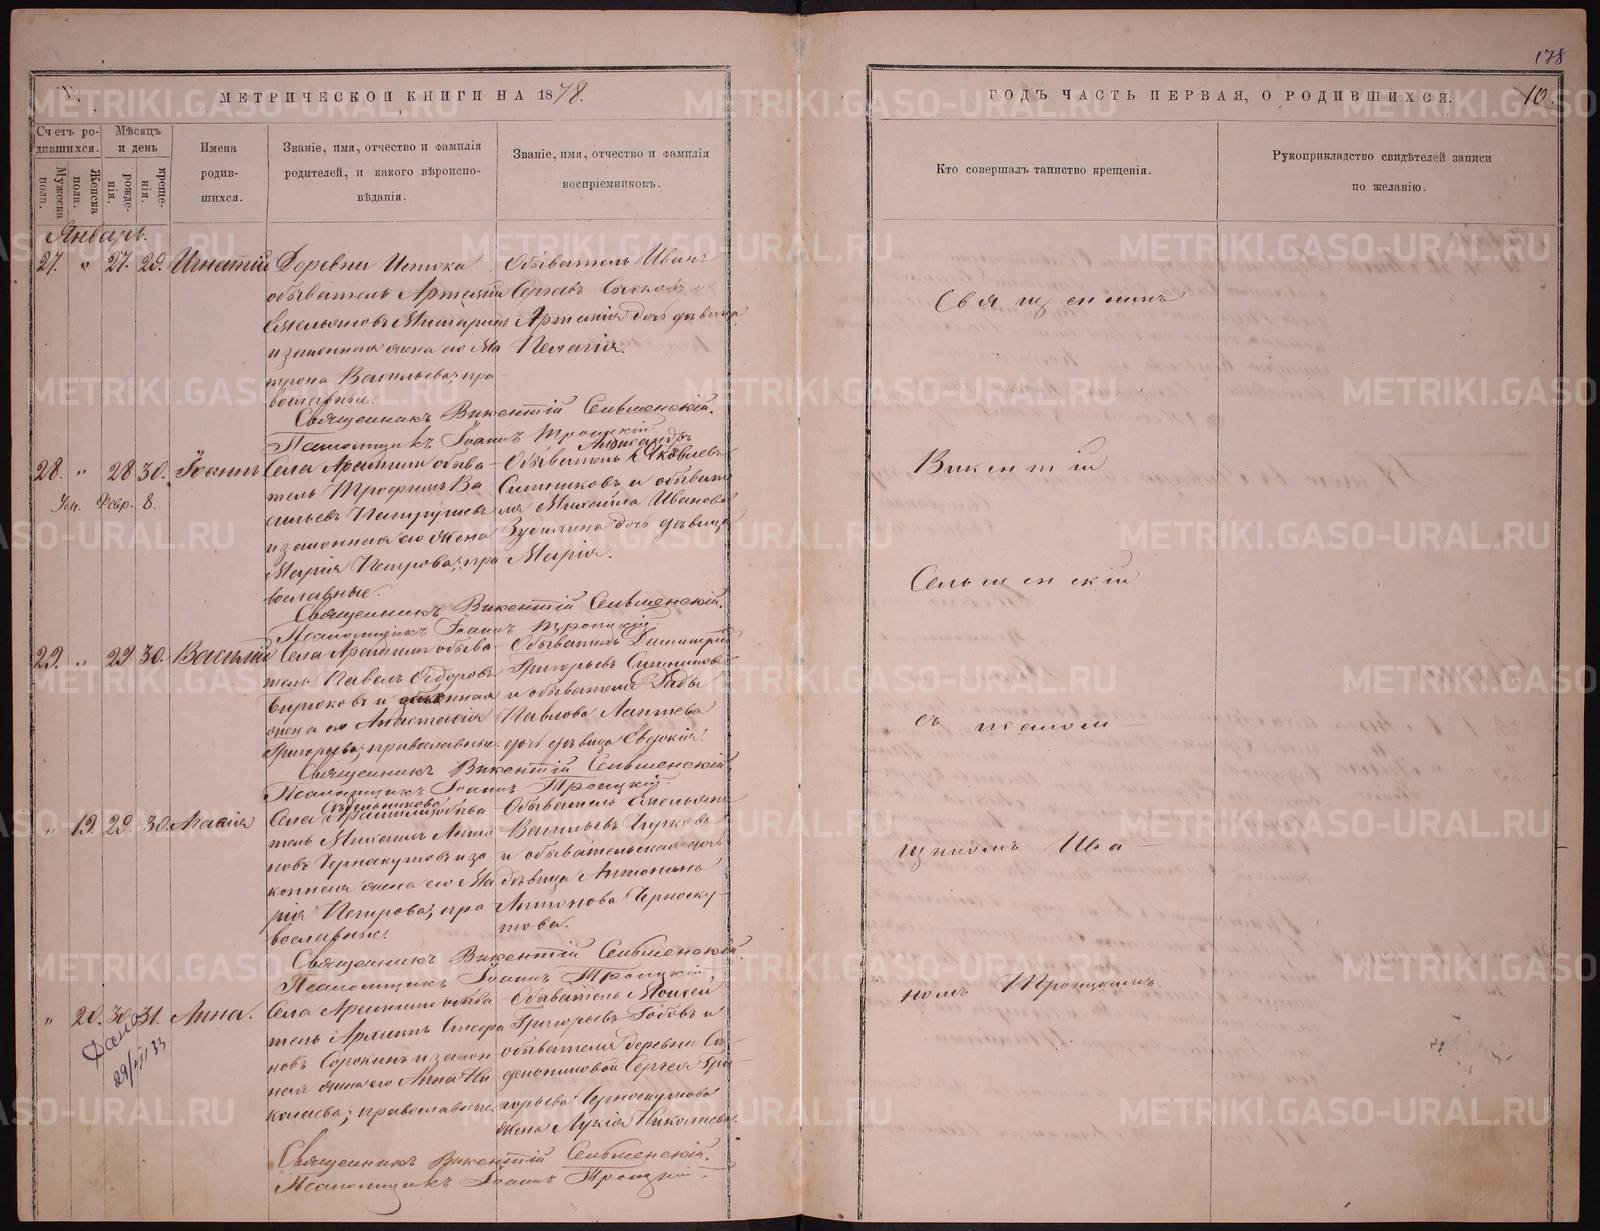 178
МЕТРИЧЕСКОЙ КНИГИ НА 1878.
ГОДЪ ЧАСТЬ ПЕРВАЯ, О РОДИВШИХСЯ.
10.
Счетъ ро-
дившихся.
Мужеска
пола.
Женска
пола.
Мѣсяцъ
и день
рожде-
нія.
креще-
нія.
Имена
родив-
шихся.
Званіе, имя, отчество и фамилія
родителей, и какого вѣроиспо-
вѣданія.
Званіе, имя, отчество и фамилія
воспріемниковъ.
Кто совершалъ таинство крещенія.
Рукоприкладство свидѣтелей записи
по желанію.
Январь.
27. " 27. 29. Игнатій
Деревни Истока
обыватель Артемій
Емельяновъ
и законная жена его Ма
трона Васильева; пра-
вославные.
Обыватель Иванъ
Сергѣевъ
Артемія дочь дѣвица
Пелагія.
Священникъ Викентій Сельменскій.
Псаломщикъ Іоаннъ Троицкій.
28. " 28 30. Іоаннъ
Ум. Февр. 8.
Села Арамили обыва-
тель Трофимъ Ва
сильевъ Патрушевъ
и законная его жена
Марія Петрова; пра
вославные.
Александръ
Обыватель Яковлевъ
Ситниковъ и обывате
ля Михаила Иванова
Зудилина дочь дѣвица
Марія.
Священникъ Викентій Сельменскій.
Псаломщикъ Іоаннъ Троицкій.
29. " 29 30. Василій
Села Арамили обыва-
тель Павелъ Ѳедоровъ
Бирюковъ и законная
жена его Анастасія
Григорьева; православные
Обыватель Димитрій
Григорьевъ Ситниковъ
и обывателя
Павлова Лаптева
дочь дѣвица Евдокія.
Священникъ Викентій Сельменскій
Псаломщикъ Іоаннъ Троицкій.
" 19. 29. 30. Анна
Села Арамили обыва
тель Михаилъ Анто
новъ Черноскутовъ и за
конная жена его Ма
рія Петрова; пра-
вославные.
Обыватель Емельянъ
Васильевъ
и обывательская дочь
дѣвица Антонина
Антонова Черноску-
това.
Священникъ Викентій Сельменскій.
Псаломщикъ Іоаннъ Троицкій.
" 20. 30. 31. Анна.
Села Арамили обыва
тель Архипъ Стефа
новъ Сорокинъ и закон
ная жена его Анна Ни
колаева; православные.
Обыватель Моисей
Григорьевъ
обывателя деревни
Сергея Гри
горьева Черноскутова
жена Лукія Николаева.
Священникъ Викентій Сельменскій.
Псаломщикъ Іоаннъ Троицкій.
Священникъ
Викентій
Сельменскій
съ псалом-
щикомъ Іоа-
номъ Троицкимъ.
METRIKI.GASO-URAL.RU